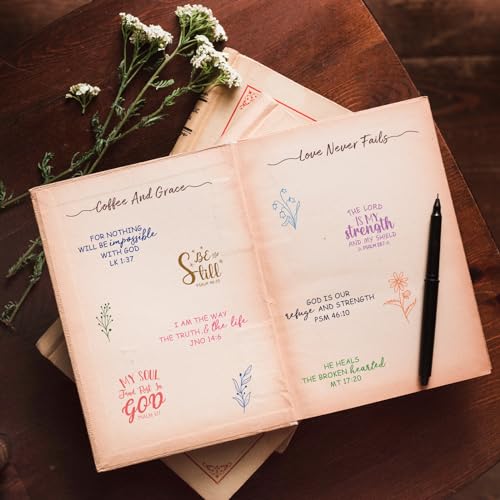 Coffee And Grace
FOR NOTHING
WILL BE impossible
WITH GOD
LK 1:37
Be
Still
PSALM 46:10
I AM THE WAY
THE TRUTH, & the life
JNO 14:6
MY SOUL
find Rest In
GOD
Love Never Fails
THE LORD
IS MY
strength
AND MY SHIELD
GOD IS OUR
refuge AND STRENGTH
PSM 46:10
HE HEALS
THE BROKEN hearted
MT 17:20